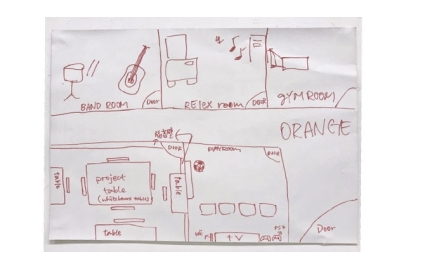 BAND ROOM
Door
RELEX room
Door
GYM ROOM
ORANGE
Door
PLAYROOM
Door
table
project
table
(whiteboard table)
table
table
TV
Door